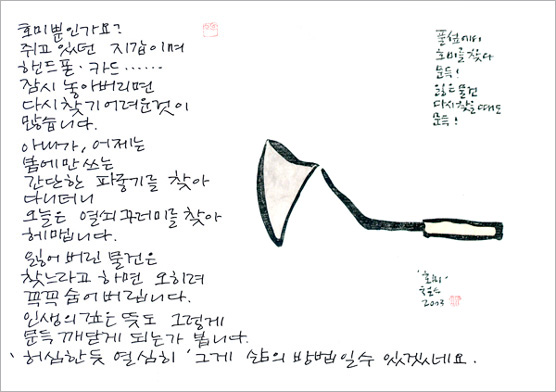 호미뿐인가요?
쥐고 있던 지갑이며
핸드폰·카드……
잠시 놓아버리면
다시 찾기 어려운것이
많습니다.
아내가, 어제는
봄에만 쓰는
간단한 파종기를 찾아
다니더니
오늘은 열쇠꾸러미를 찾아
헤맵니다.
잃어버린 물건은
찾느라고 하면 오히려
꼭꼭 숨어버립니다.
인생의 깊은 뜻도 그렇게
문득 깨닫게 되는가 봅니다.
'허심한듯 열심히' 그게 삶의 방법일수 있겠네요.
풀섶에서
호미를 찾다
문득!
잃은물건
다시찾을때도
문득!
'호미'
철수
2003